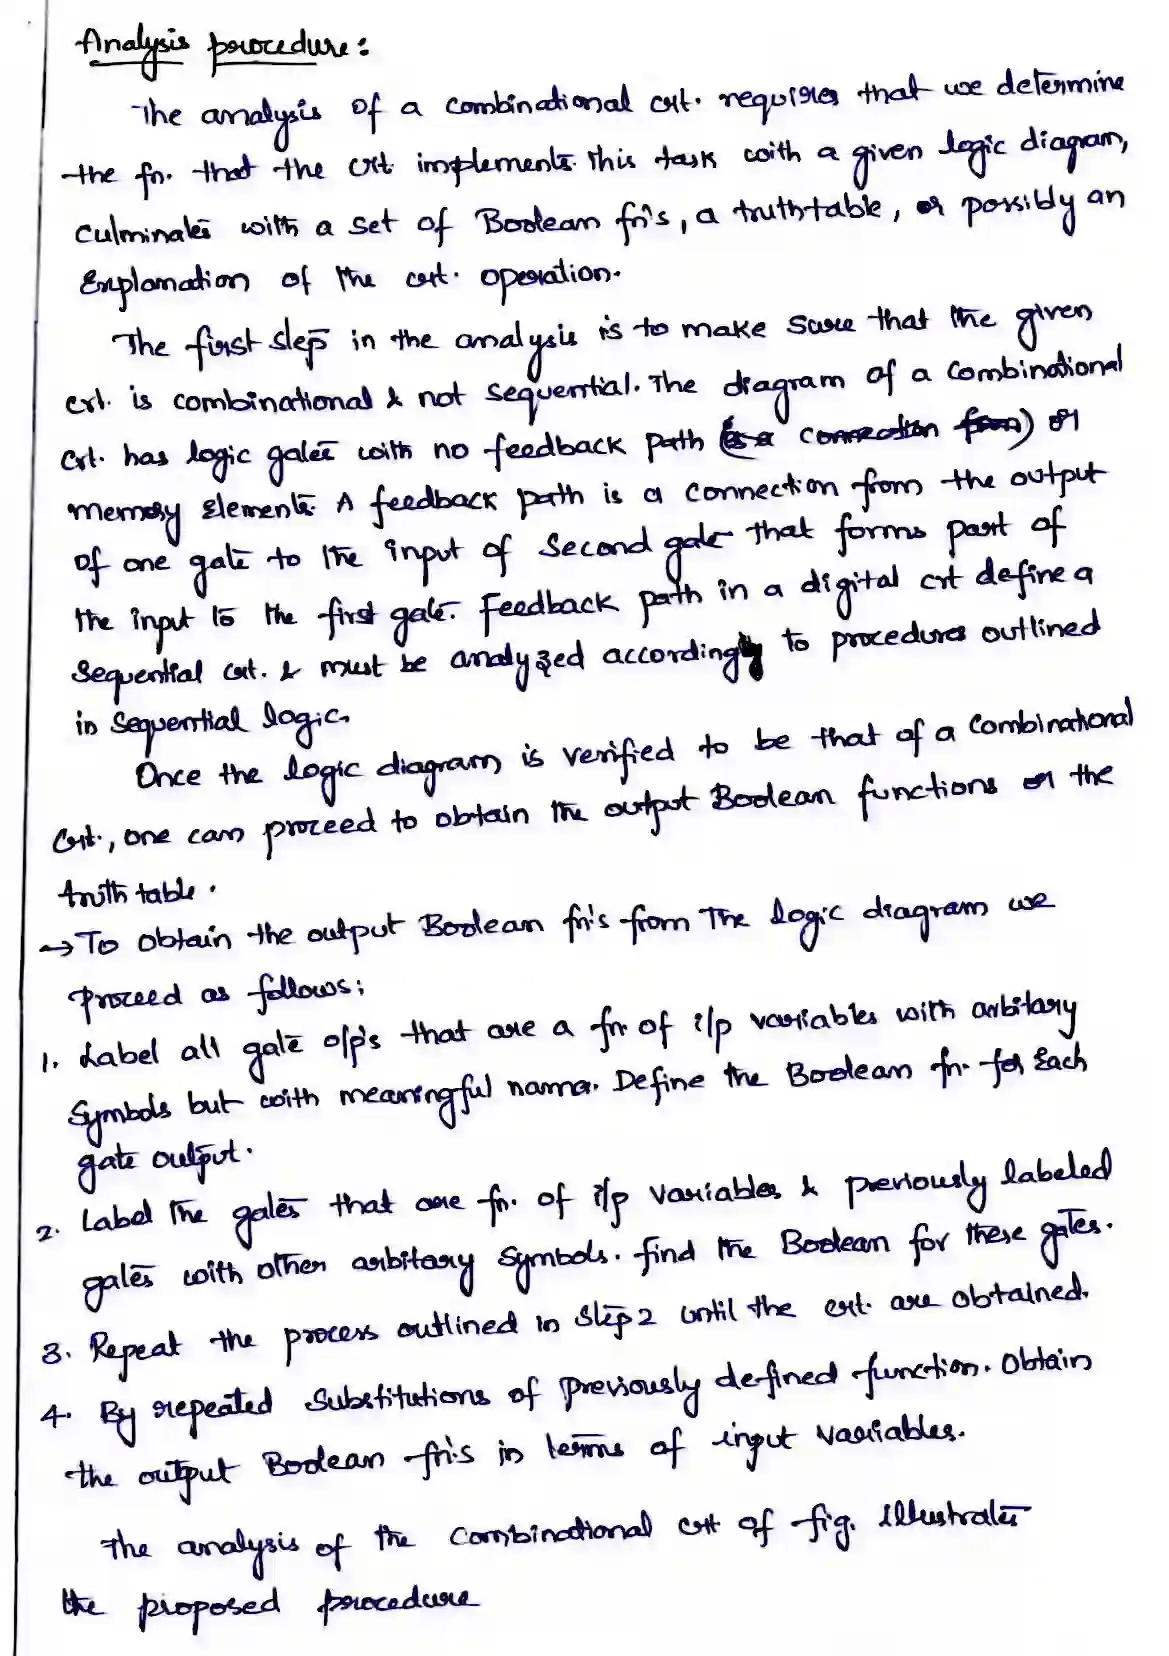 Analysis procedure:
The analysis of a combinational crt. requires that we determine
the fn. that the crt. implements. this task with a given logic diagram,
culminates with a set of Boolean fn's, a truthtable, or possibly an
Explanation of the crt. operation.
The first step in the analysis is to make sure that the given
crt. is combinational & not sequential. The diagram of a combinational
crt. has logic gates with no feedback path (is a connection from) or
memory Elements. A feedback path is a connection from the output
of one gate to the input of second gate that forms part of
the input to the first gate. Feedback path in a digital crt define a
sequential crt. & must be analyzed accordingly to procedures outlined
in sequential logic.
Once the logic diagram is verified to be that of a combinational
Crt., one can proceed to obtain the output Boolean functions or the
truth table.
→ To obtain the output Boolean fn's from The logic diagram we
proceed as follows:
1. Label all gate o/p's that are a fn. of i/p variables with arbitary
symbols but with meaningful names. Define the Boolean fn. for Each
gate output.
2. Label The gates that are fn. of i/p variables & previously labeled
gates with other arbitary symbols. find the Boolean for these gates.
3. Repeat the process outlined in step 2 until the crt. are obtained.
4. By repeated substitutions of previously defined function. Obtain
the output Boolean fn's in terms of input variables.
The analysis of the combinational crt of fig. illustrates
the proposed procedure